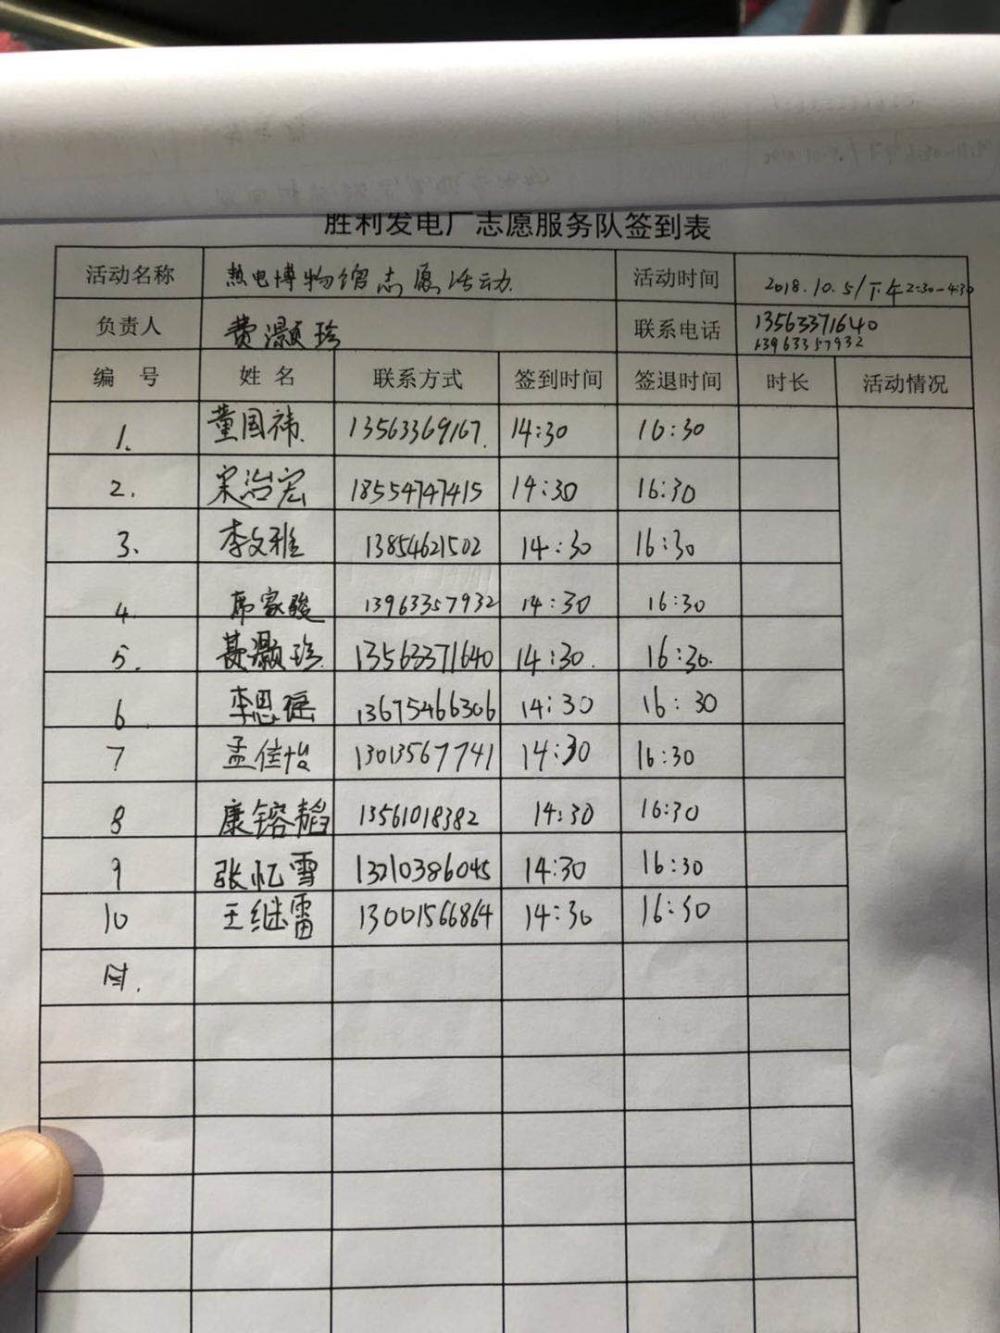 胜利发电厂志愿服务队签到表
活动名称 热电博物馆志愿活动. 活动时间 2018.10.5/下午2:30-4:30
负责人 费灏珍 联系电话 13563371640
13963357932
编 号 姓 名 联系方式 签到时间 签退时间 时长 活动情况
1. 董国祎. 13563369167. 14:30 16:30
2. 宋治宏 18554747415 14:30 16:30
3. 李文雅 13854621502 14:30 16:30
4 席家骏 13963357932 14:30 16:30
5. 费灏珍 13563371640 14:30. 16:30.
6 李思瑶 13675466306 14:30 16:30
7 孟佳怡 13013567741 14:30 16:30
8 康镕韬 13561018382 14:30 16:30
9 张忆雪 13210386045 14:30 16:30
10 王继雷 13001566864 14:30 16:30